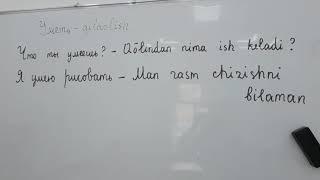 Уметь - qilaolish
Что ты умеешь? - Qo'lindan nima ish keladi?
Я умею рисовать - Man rasm chizishni
bilaman